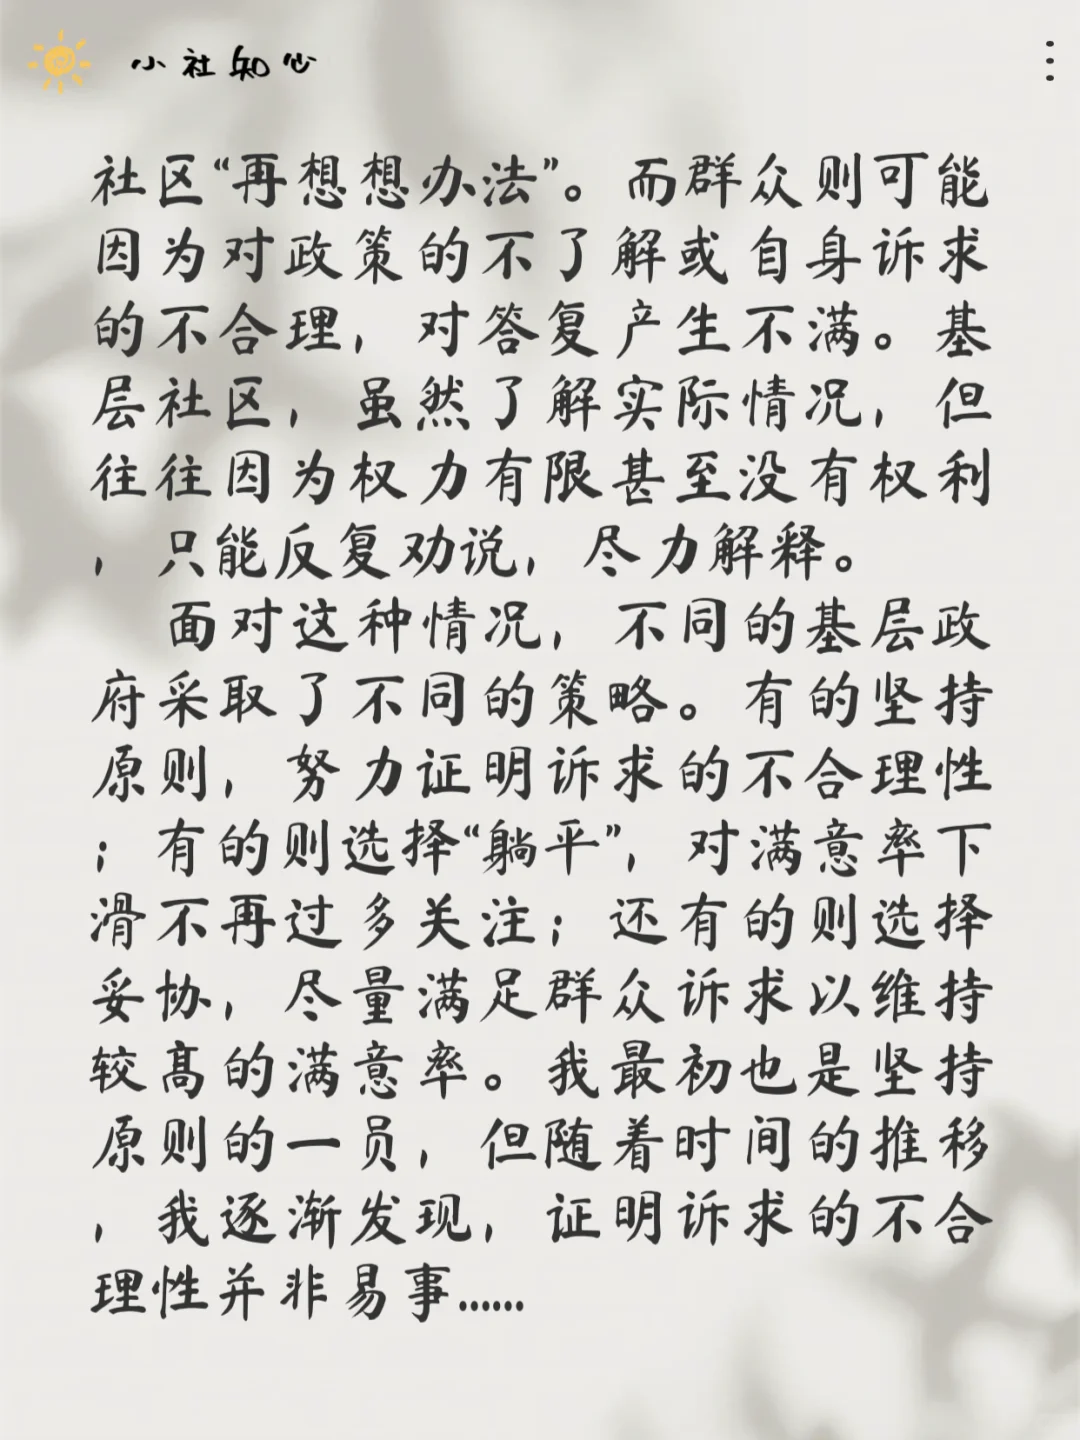 小社知心
社区“再想想办法”。而群众则可能
因为对政策的不了解或自身诉求
的不合理，对答复产生不满。基
层社区，虽然了解实际情况，但
往往因为权力有限甚至没有权利
，只能反复劝说，尽力解释。
面对这种情况，不同的基层政
府采取了不同的策略。有的坚持
原则，努力证明诉求的不合理性
；有的则选择“躺平”，对满意率下
滑不再过多关注；还有的则选择
妥协，尽量满足群众诉求以维持
较高的满意率。我最初也是坚持
原则的一员，但随着时间的推移
，我逐渐发现，证明诉求的不合
理性并非易事……